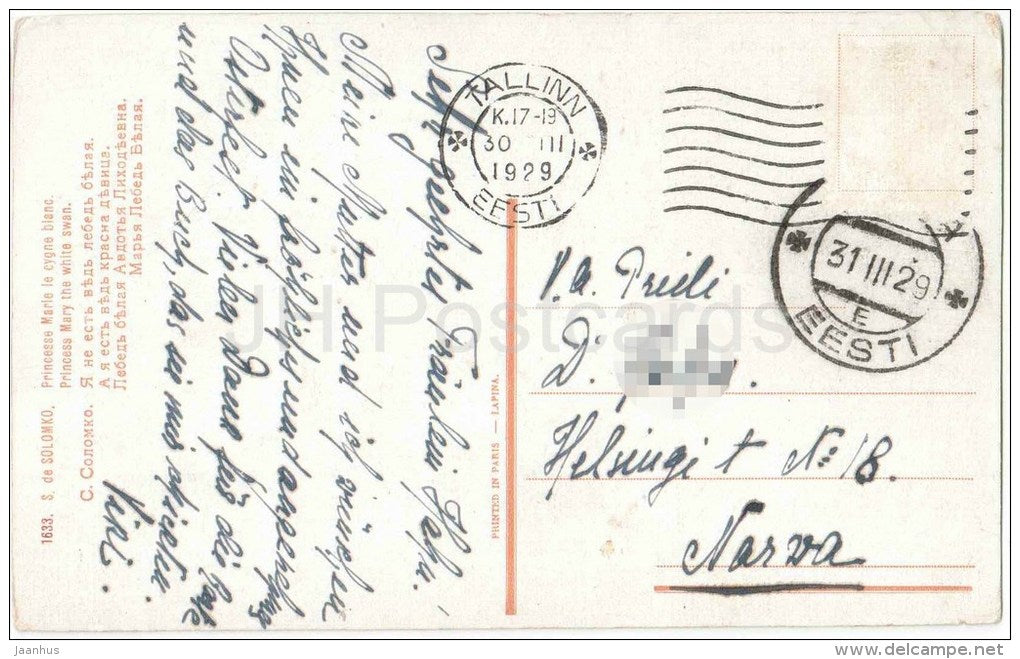 1633. S. de SOLOMKO. Princesse Marie le cygne blanc.
Princess Mary the white swan.
С. Соломко. Я не есть вѣдь лебедь бѣлая.
А я есть вѣдь красна дѣвица.
Лебедь бѣлая Авдотья Лиходѣевна.
Марья Лебедь Бѣлая.
Sehr geehrtes Fräulein
Meine Mutter und ich wünschen
Ihnen ein fröhliches und angenehmes
Osterfest. Vielen Dank für die Karte
und das Buch, das sie mir
TALLINN
K.17-19
30 III
1929
EESTI
31 III 29
E
EESTI
PRINTED IN PARIS — LAPINA.
V. A. Preili
D.
Helsingi t No: 18.
Narva
JH Postcards
jaanhus
www.delcampe.net